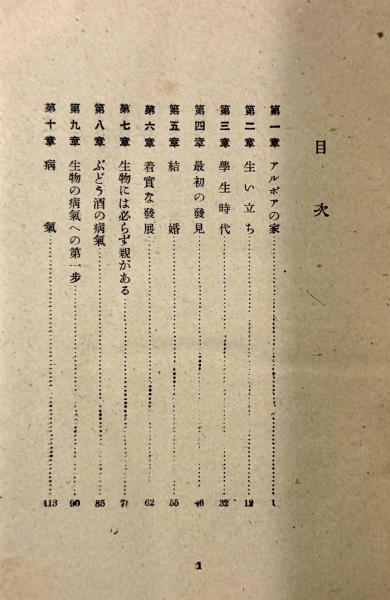 目次
第一章 アルボアの家 1
第二章 生い立ち 12
第三章 學生時代 32
第四章 最初の發見 46
第五章 結婚 55
第六章 着實な發展 62
第七章 生物には必らず親がある 7
第八章 ぶどう酒の病氣 85
第九章 生物の病氣への第一步 90
第十章 病氣 113
1